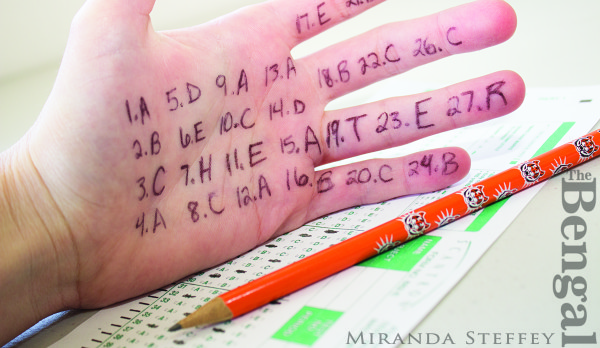 17.E
1.A 5.D 9.A 13.A 18.B 22.C 26.C
2.B 6.E 10.C 14.D
3.C 7.H 11.E 15.A 19.T 23.E 27.R
4.A 8.C 12.A 16. 20.C 24.B
The Bengal
MIRANDA STEFFEY